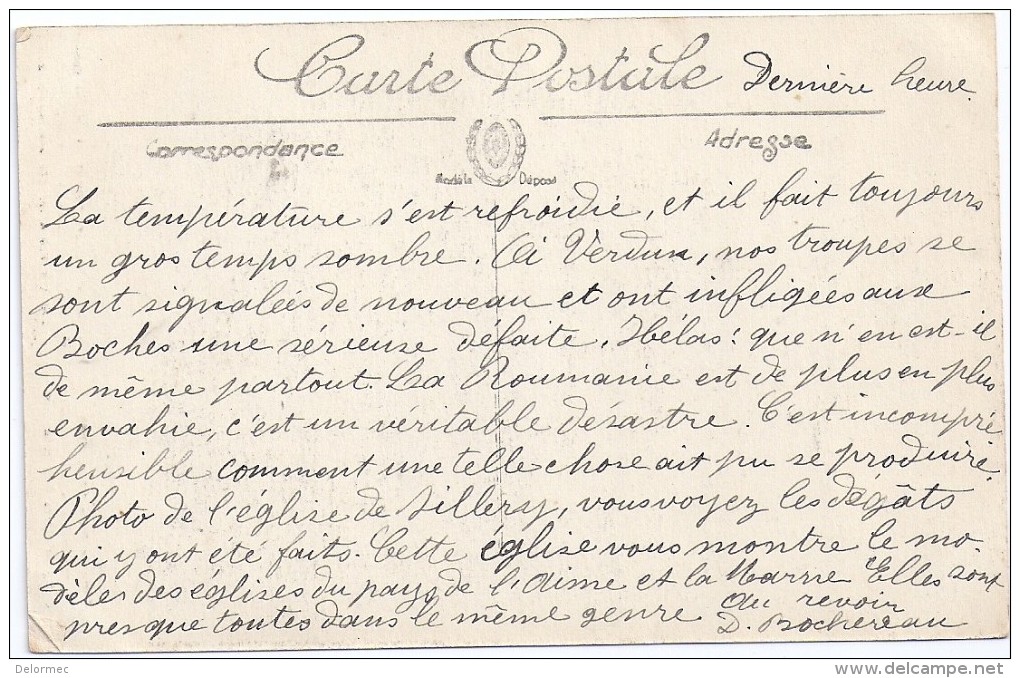 Carte Postale
Dernière heure
Correspondance
Adresse
Modèle Déposé
La température s'est refroidie, et il fait toujours
un gros temps sombre. A Verdun, nos troupes se
sont signalées de nouveau et ont infligées aux
Boches une sérieuse défaite, Hélas! que n'en est-il
de même partout. La Roumanie est de plus en plus
envahie, c'est un véritable désastre. C'est incompré
hensible comment une telle chose ait pu se produire.
Photo de l'église de Sillery, vous voyez les dégâts
qui y ont été faits. Cette église vous montre le mo-
dèle des églises du pays de l'Aisne et la Marne Elles sont
presque toutes dans le même genre
Au revoir
D. Bochereau
Delormec
delcampe.net